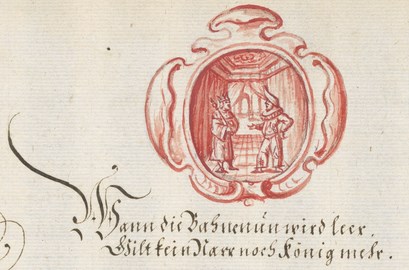 Wann die Bahne nun wird leer,
Gilt kein Narr noch König mehr.